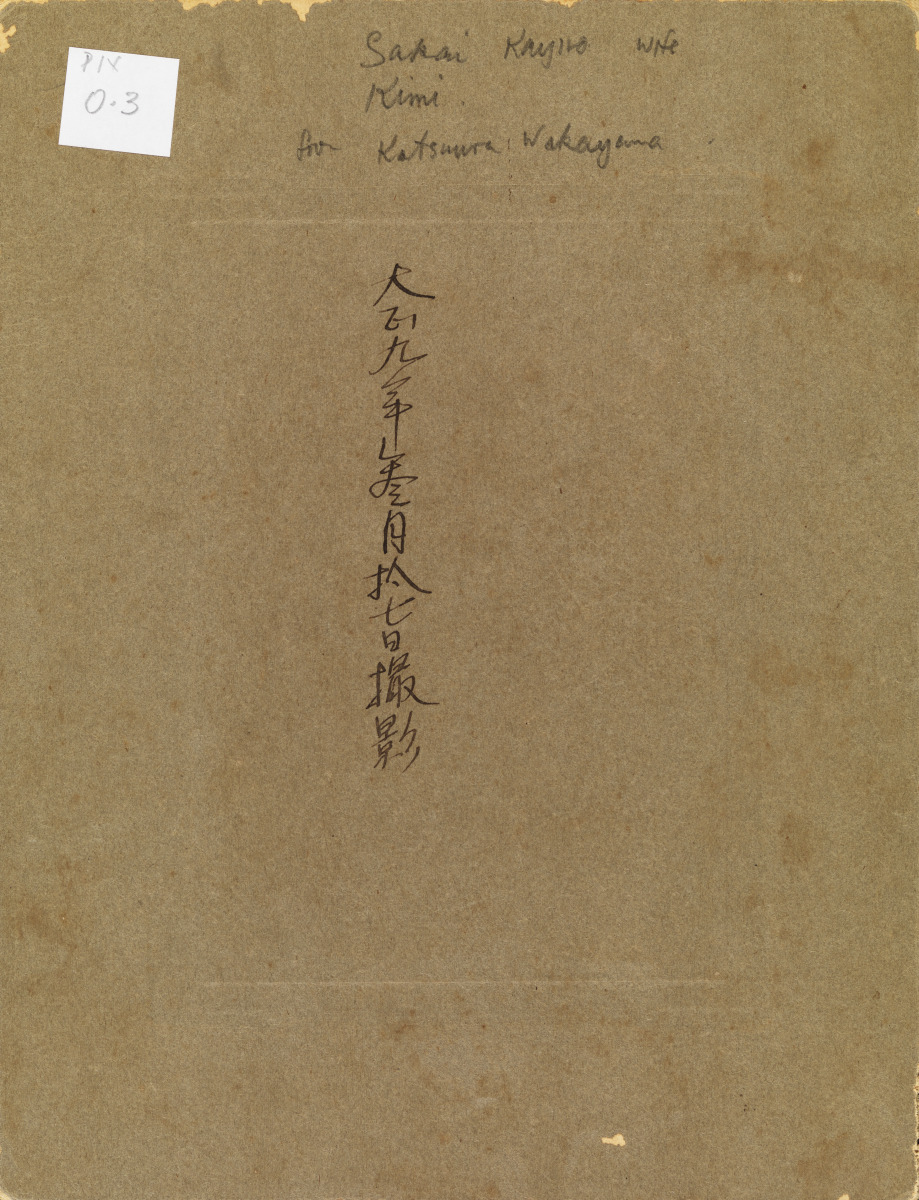 PIX
0.3
Sakai Kayiro wife
Kimi.
from Katsuura: Wakayama
大正九年参月拾七日撮影